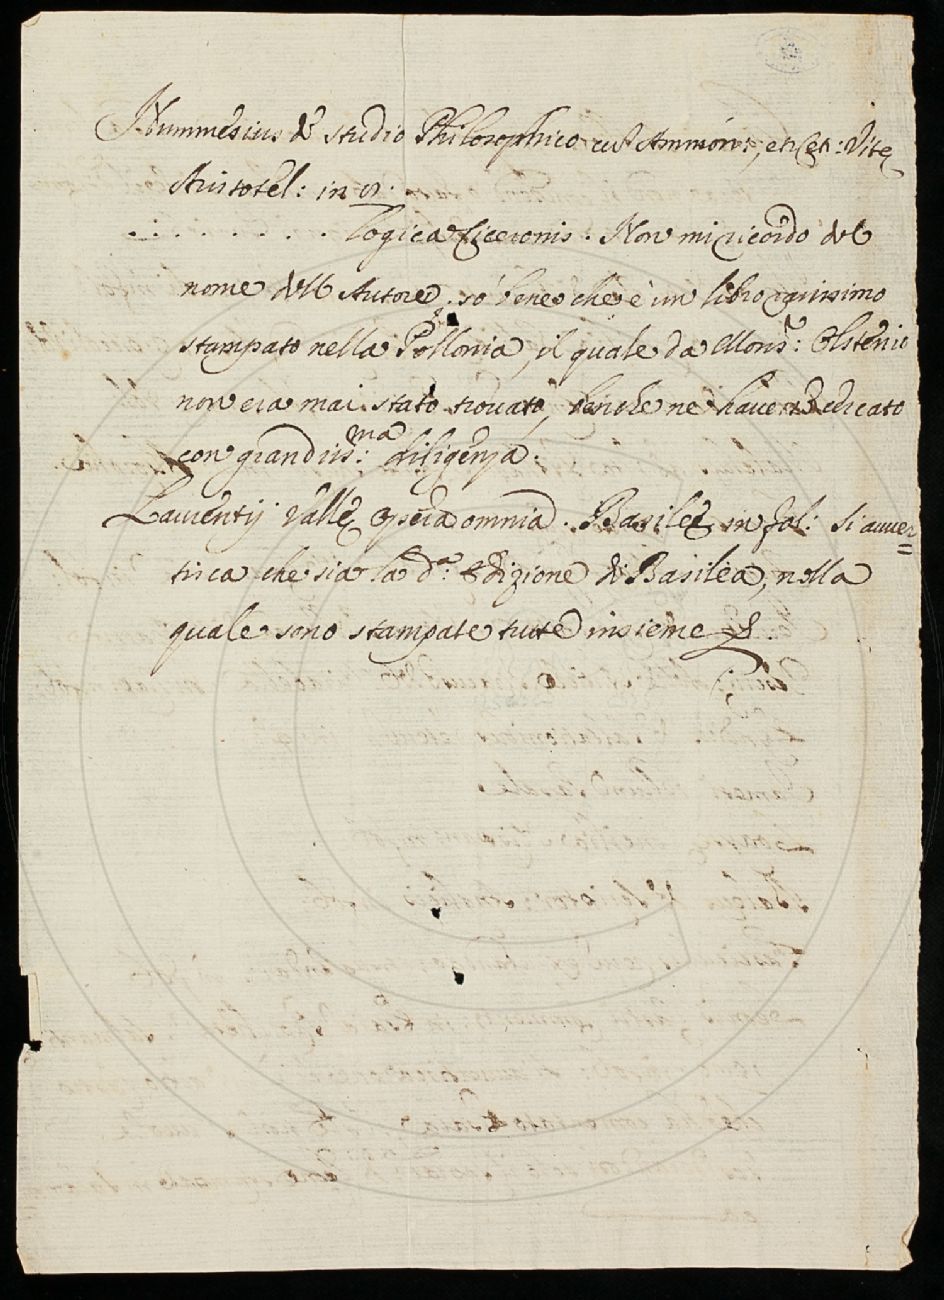 Nunnesius de studio Philosophico cu Ammon:, et et: Vitę
Aristotel: in 8.
. . . . . . . . Logica Ciceronis. Non mi ricordo del
nome dell Autore, sò bene che è un libro rarissimo
stampato nella Pollonia, il quale da Monsr: Olstenio
non era mai stato trovato, benche ne havesse cercato
con grandiss:ma diligenza.
Laurentij Vallę opera omnia. Basileę in fol: si auuer=
tisca che sia la da: Edizione di Basilea, nella
quale sono stampate tutte insieme